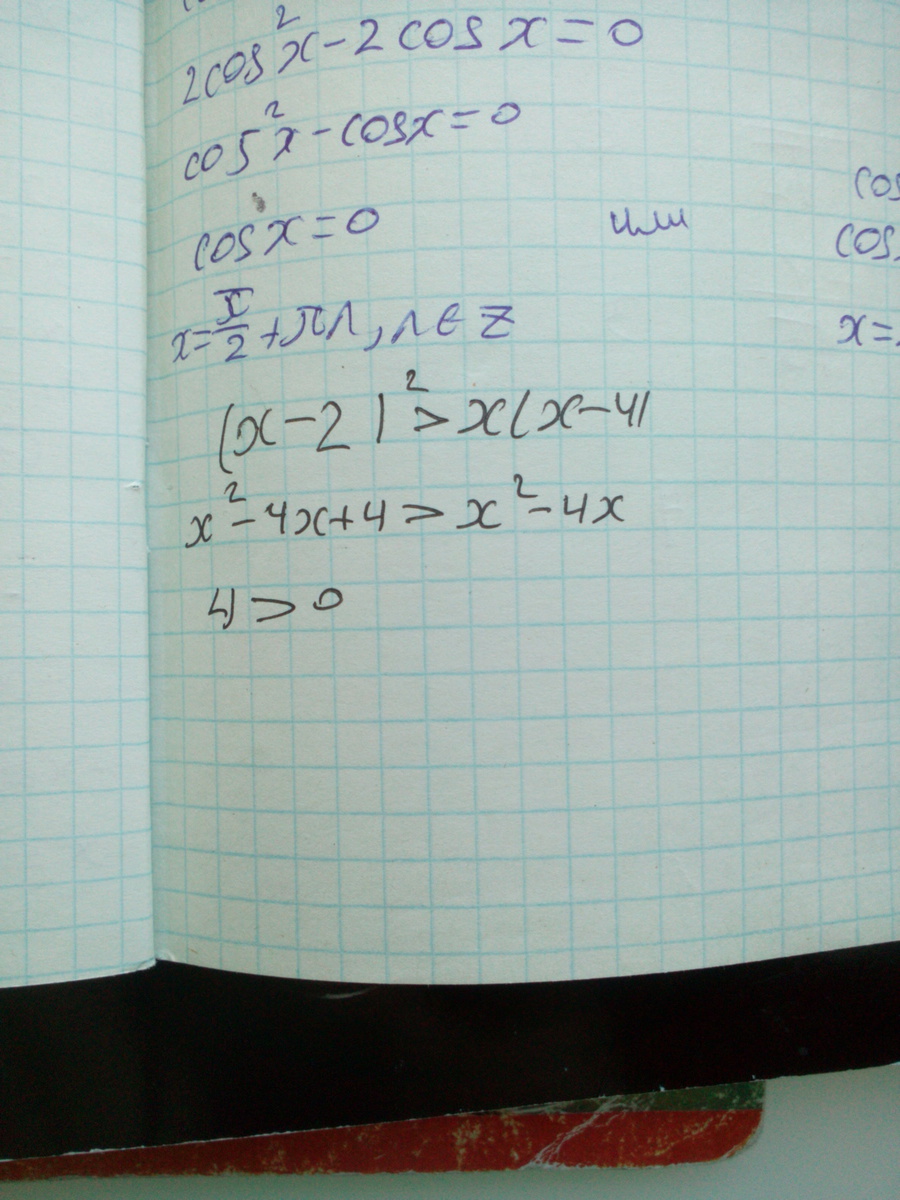 2cos²x-2cosx=0
cos²x-cosx=0
cos
cosx=0 или cos
x=π/2+πn, n∈Z x=
(x-2)²>x(x-4)
x²-4x+4>x²-4x
4>0